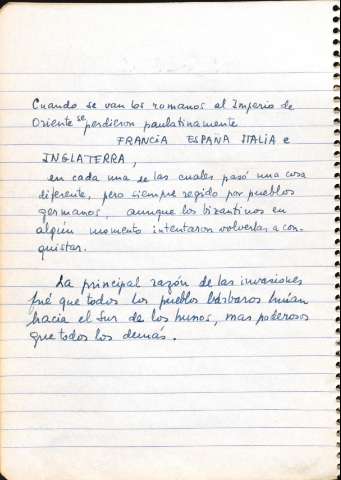 Cuando se van los romanos al Imperio de
Oriente se perdieron paulatinamente
FRANCIA ESPAÑA ITALIA e
INGLATERRA,
en cada una de las cuales pasó una cosa
diferente, pero siempre regido por pueblos
germanos, aunque los bizantinos en
algún momento intentaron volverlas a con-
quistar.
La principal razón de las invasiones
fué que todos los pueblos bárbaros huían
hacia el Sur de los hunos, mas poderosos
que todos los demás.